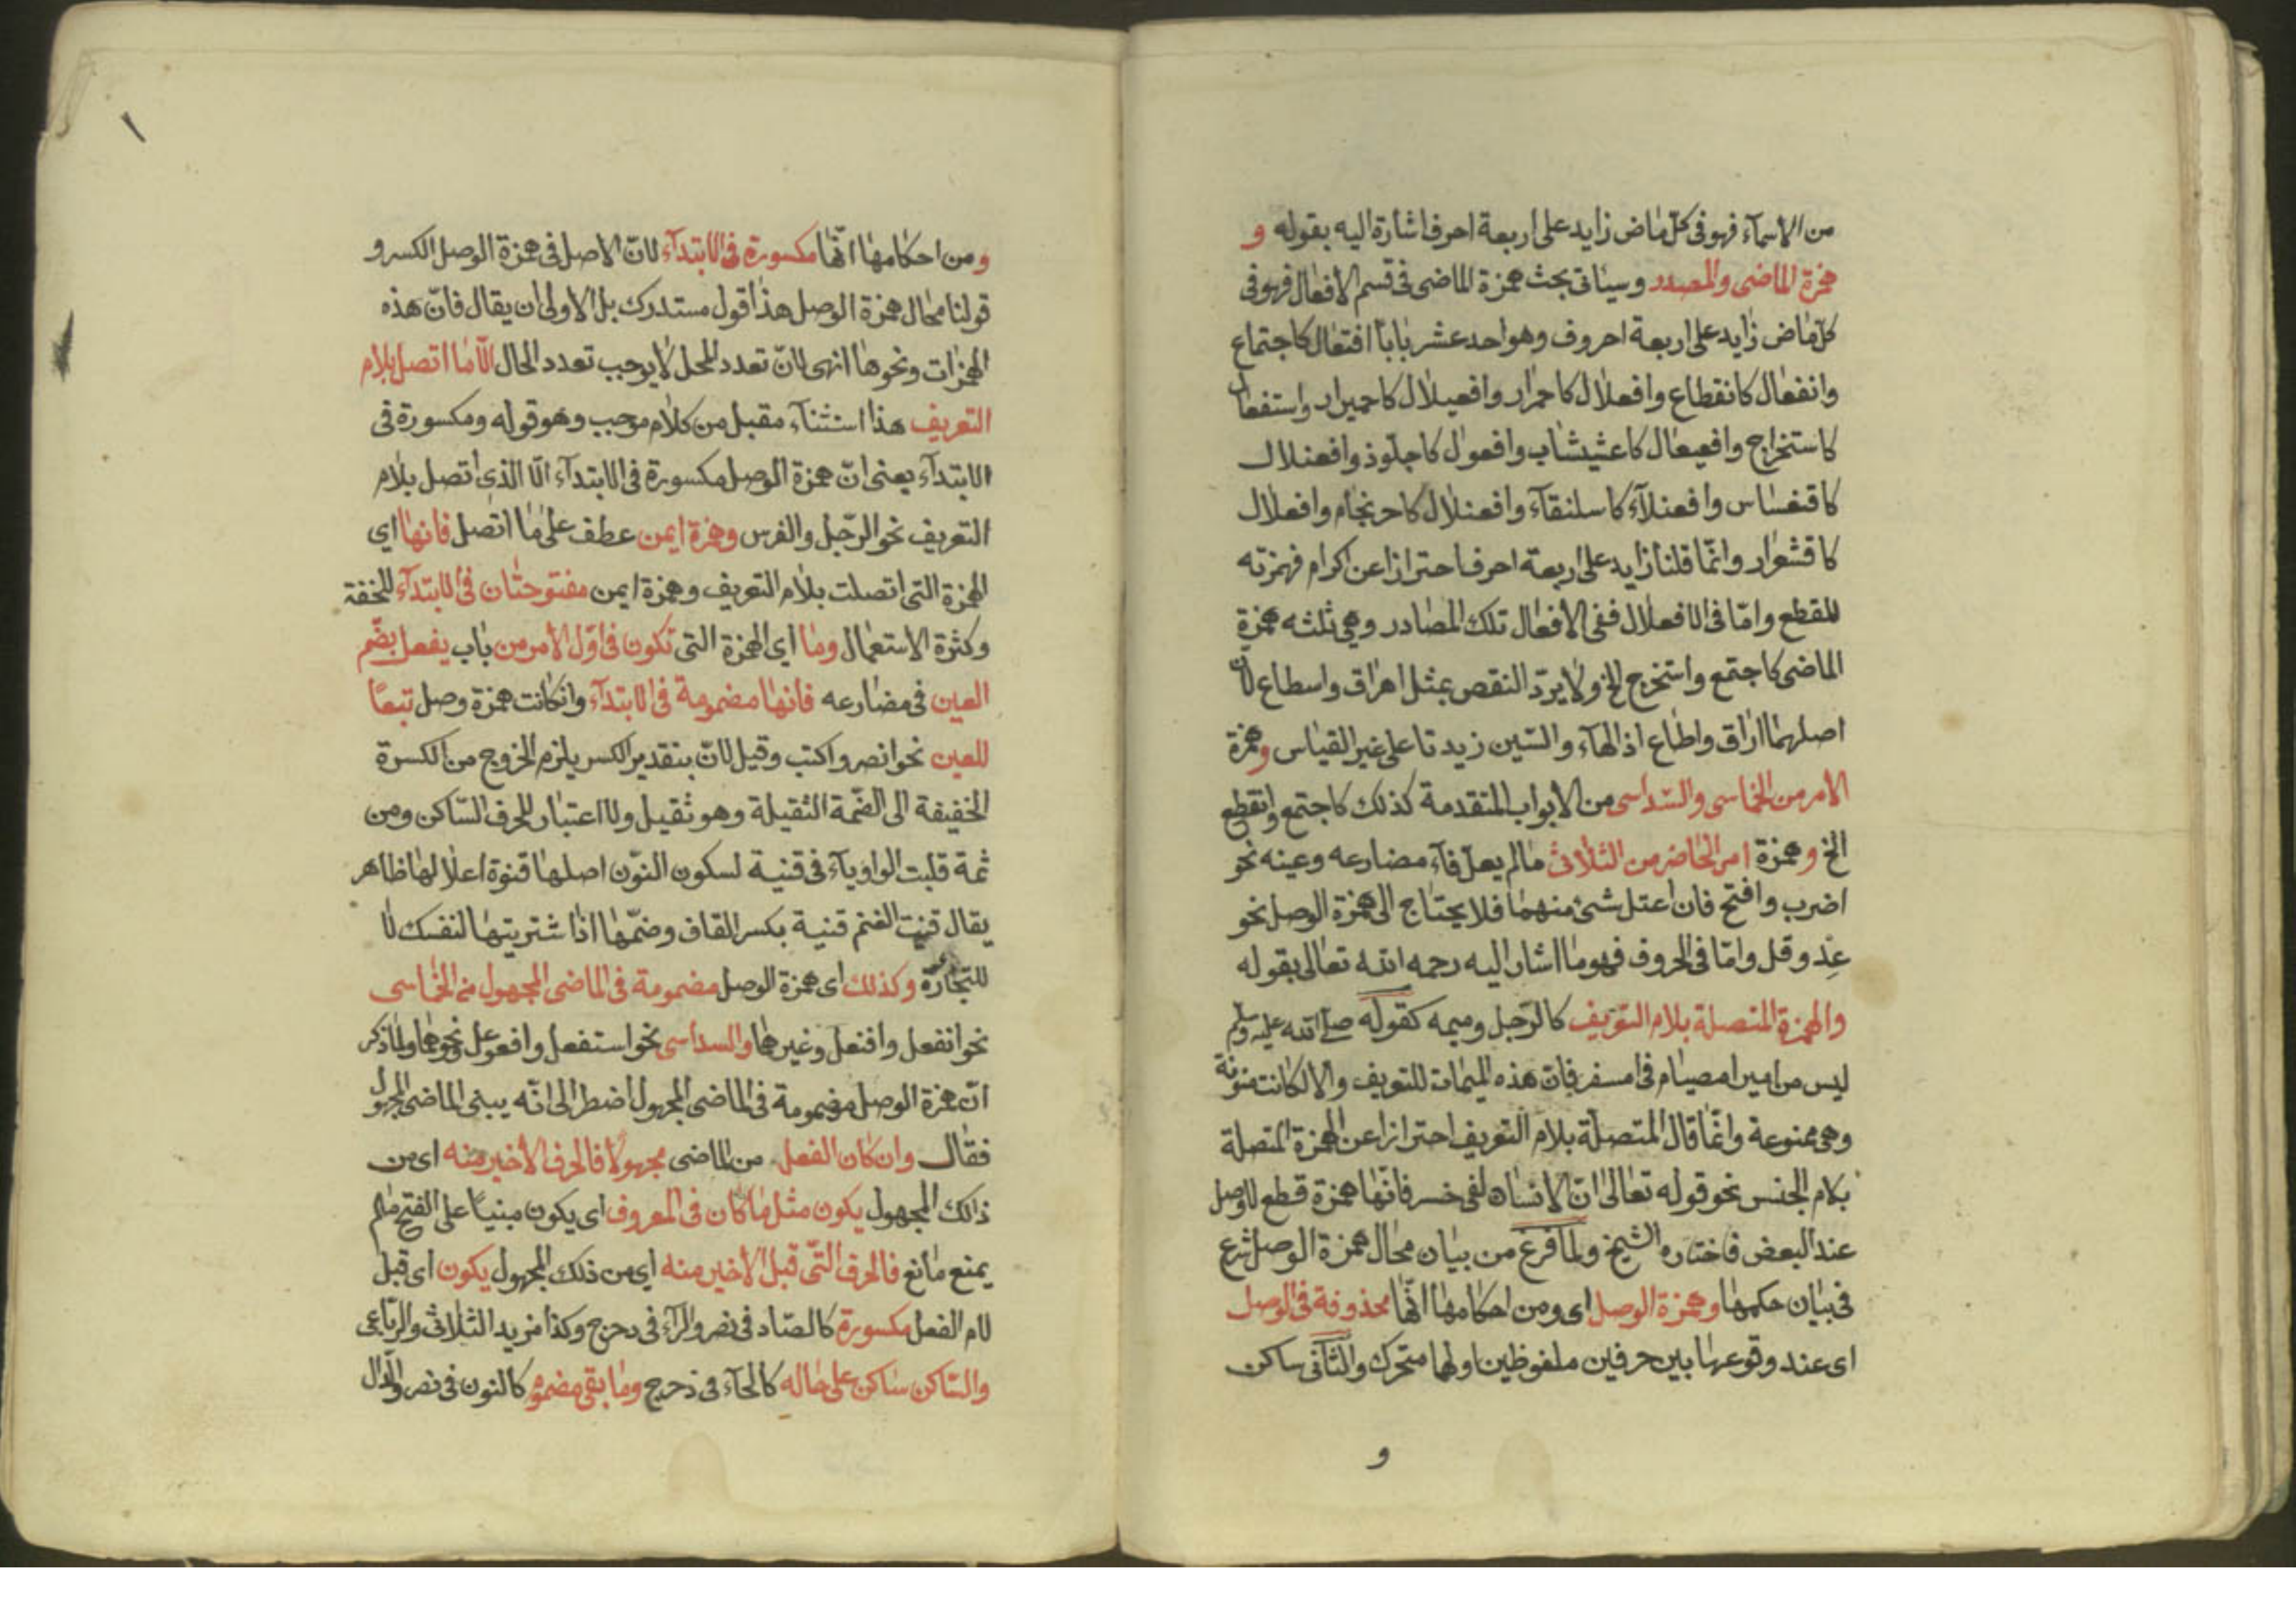 من الاسمآء فهو فى كلّ ماض زايد على اربعة احرف اشارة اليه بقوله و
همزة الماضى والمصدر وسياتى بحث همزة الماضى فى قسم الأفعال فهو فى
كلّ ماض زايد على اربعة احروف وهو احد عشر باباً افتعال كاجتماع
وانفعال كانقطاع وافعلال كاحمرار وافعيلال كاحميرار واستفعال
كاستخراج وافعيعال كاعشيشاب وافعوال كاجلّوذ وافعنلال
كاقنفساس وافعنلآء كاسلنقآء وافعنلال كاحرنجام وافعلال
كاقشعرار وانّما قلنا زايد على اربعة احرف احترازا عن اكرام فهمزته
للمقطع وامّا فى الافعلال ففى الأفعال تلك المصادر وهى ثلثه همزة
الماضى كاجتمع واستخرج الخ ولا يردّ النقص بمثل اهراق واسطاع لانّ
اصلهما اراق واطاع اذ الهآء والسّين زيدتا على غير القياس وهمزة
الأمر من الخماسى والسّداسى من الأبواب المتقدمة كذلك كاجتمع وانقطع
الخ وهمزة امر الحاضر من الثلاثى مالم يعلّ فآء مضارعه وعينه نحو
اضرب وافتح فان اعتل شئ منهما فلا يحتاج الى همزة الوصل نحو
عِد وقل وامّا فى الحروف فهو ما اشار اليه رحمه الله تعالى بقوله
والهمزة المتصلة بلام التعريف كالرّجل وميمه كقوله صلى الله عليه وسلم
ليس من امبر امصيام فى امسفر فانّ هذه الميمات للتعريف والا لكانت منونة
وهى ممنوعة وانّما قال المتصلة بلام التعريف احترازا عن الهمزة المتصلة
بلام الجنس نحو قوله تعالى انّ الانسان لفى خسر فانّها همزة قطع لا وصل
عند البعض فاختاره الشيخ ولما فرغ من بيان محال همزة الوصل شرع
فى بيان حكمها وهمزة الوصل اى ومن احكامها انّها محذوفة فى الوصل
اى عند وقوعها بين حرفين ملفوظين اولهما متحرك والثّانى ساكن
و
ومن احكامها انّها مكسورة فى الابتدآء لانّ الاصل فى همزة الوصل الكسر و
قولنا محال همزة الوصل هذا قول مستدرك بل الاولى ان يقال فانّ هذه
الهمزات ونحوها انهى لانّ تعدد المحل لا يوجب تعدد الحال الّا ما اتصل بلام
التعريف هذا استثنآء مقبل من كلام موجب وهو قوله ومكسورة فى
الابتدآء يعنى انّ همزة الوصل مكسورة فى الابتدآء الّا الذى اتصل بلام
التعريف نحو الرّجل والفرس وهمزة ايمن عطف على ما اتصل فانها اى
الهمزة التى اتصلت بلام التعريف وهمزة ايمن مفتوحتان فى الابتدآء للخفة
وكثرة الاستعمال وما اى الهمزة التى تكون فى اوّل الأمر من باب يفعل بضّم
العين فى مضارعه فانها مضمومة فى الابتدآء وانكانت همزة وصل تبعًا
للعين نحو انصر واكتب وقيل لانّ بتقدير الكسر يلزم الخروج من الكسرة
الخفيفة الى الضّمة الثقيلة وهو ثقيل ولا اعتبار للحرف السّاكن ومن
ثمة قلبت الواو يآء فى قنية لسكون النوّن اصلها قنوة اعلالها ظاهر
يقال قنيت الغنم قنية بكسر القاف وضمّها اذا شتريتها لنفسك لا
للتّجارة وكذلك اى همزة الوصل مضمومة فى الماضى المجهول من الخماسى
نحو انفعل وافتعل وغيرهما والسداسى نحو استفعل وافعوعل ونحوهما ولما ذكر
انّ همزة الوصل مضمومة فى الماضى المجهول اضطر الى انّه يبنى الماضى المجهول
فقال وان كان الفعل من الماضى مجهولًا فالحرف الأخير منه اى من
ذالك المجهول يكون مثل ما كان فى المعروف اى يكون مبنيـاً على الفتح مالم
يمنع مانع فالحرف التّى قبل الاخير منه اى من ذلك المجهول يكون اى قبل
لام الفعل مكسورة كالصّاد فى نصر والرّآء فى دحرج وكذا مزيد الثلاثى والرّباعى
والسّاكن ساكن على حاله كالحآء فى دحرج وما بقى مضموم كالنون فى نصر والدّال